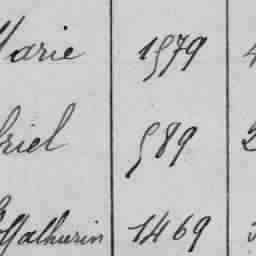 Marie 1579
riel 589
Mathurin 1469